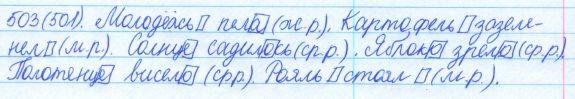 503(501). Молодёжь пела (ж.р.). Картофель зазеле-
нел (м.р.). Солнце садилось (ср.р.). Яблоко зрело (ср.р.)
Полотенце висело (ср.р.). Рояль стоял (м.р.).